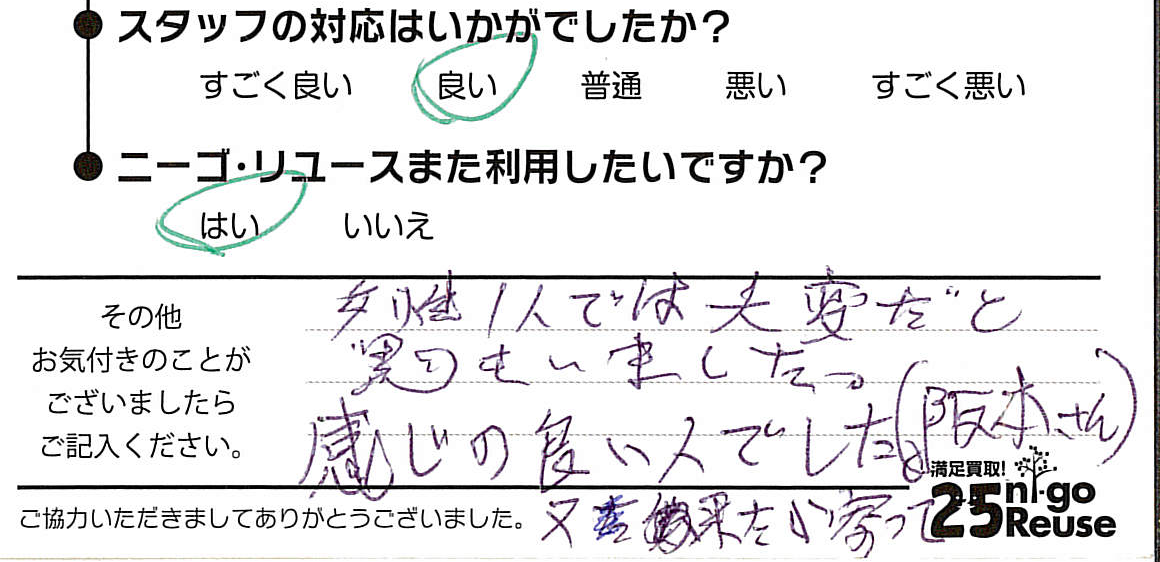 スタッフの対応はいかがでしたか？
すごく良い 良い 普通 悪い すごく悪い
ニーゴ・リユースまた利用したいですか？
はい いいえ
その他
お気付きのことが
ございましたら
ご記入ください。
女性1人では大変だと
思いました。
感じの良い人でした。(阪本さん)
又 来たら寄って
満足買取!
25 ni-go Reuse
ご協力いただきましてありがとうございました。